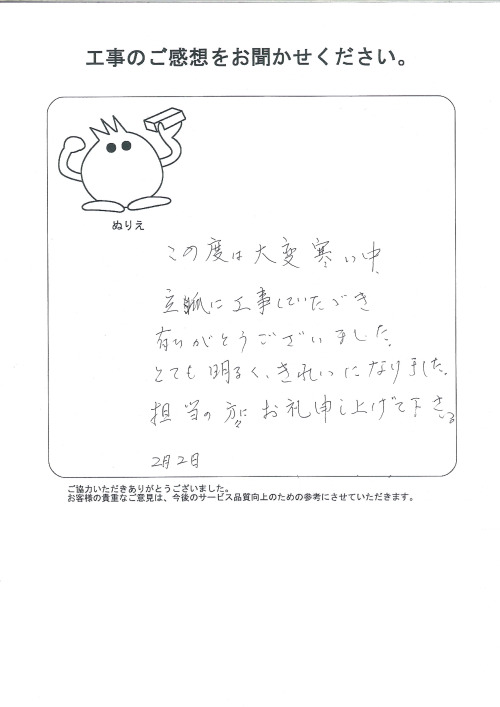 工事のご感想をお聞かせください。
ぬりえ
この度は大変寒い中、
立派に工事していただき
有りがとうございました。
とても明るく、きれいになりました。
担当の方にお礼申し上げて下さい
2月2日
ご協力いただきありがとうございました。
お客様の貴重なご意見は、今後のサービス品質向上のための参考にさせていただきます。